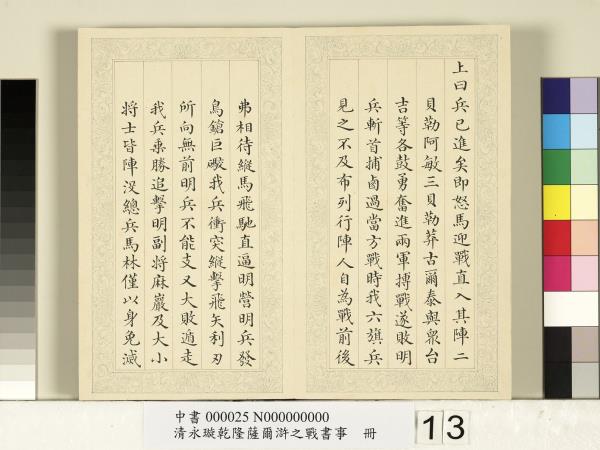 上曰兵已進矣即怒馬迎戰直入其陣二
貝勒阿敏三貝勒莽古爾泰與眾台
吉等各鼓勇奮進兩軍搏戰遂敗明
兵斬首捕鹵過當方戰時我六旗兵
見之不及布列行陣人自為戰前後
弗相待縱馬飛馳直逼明營明兵發
鳥鎗巨礮我兵衝突縱擊飛矢利刃
所向無前明兵不能支又大敗遁走
我兵乘勝追擊明副將麻巖及大小
將士皆陣沒總兵馬林僅以身免滅
中書 000025 N000000000
清永璇乾隆薩爾滸之戰書事 冊
13